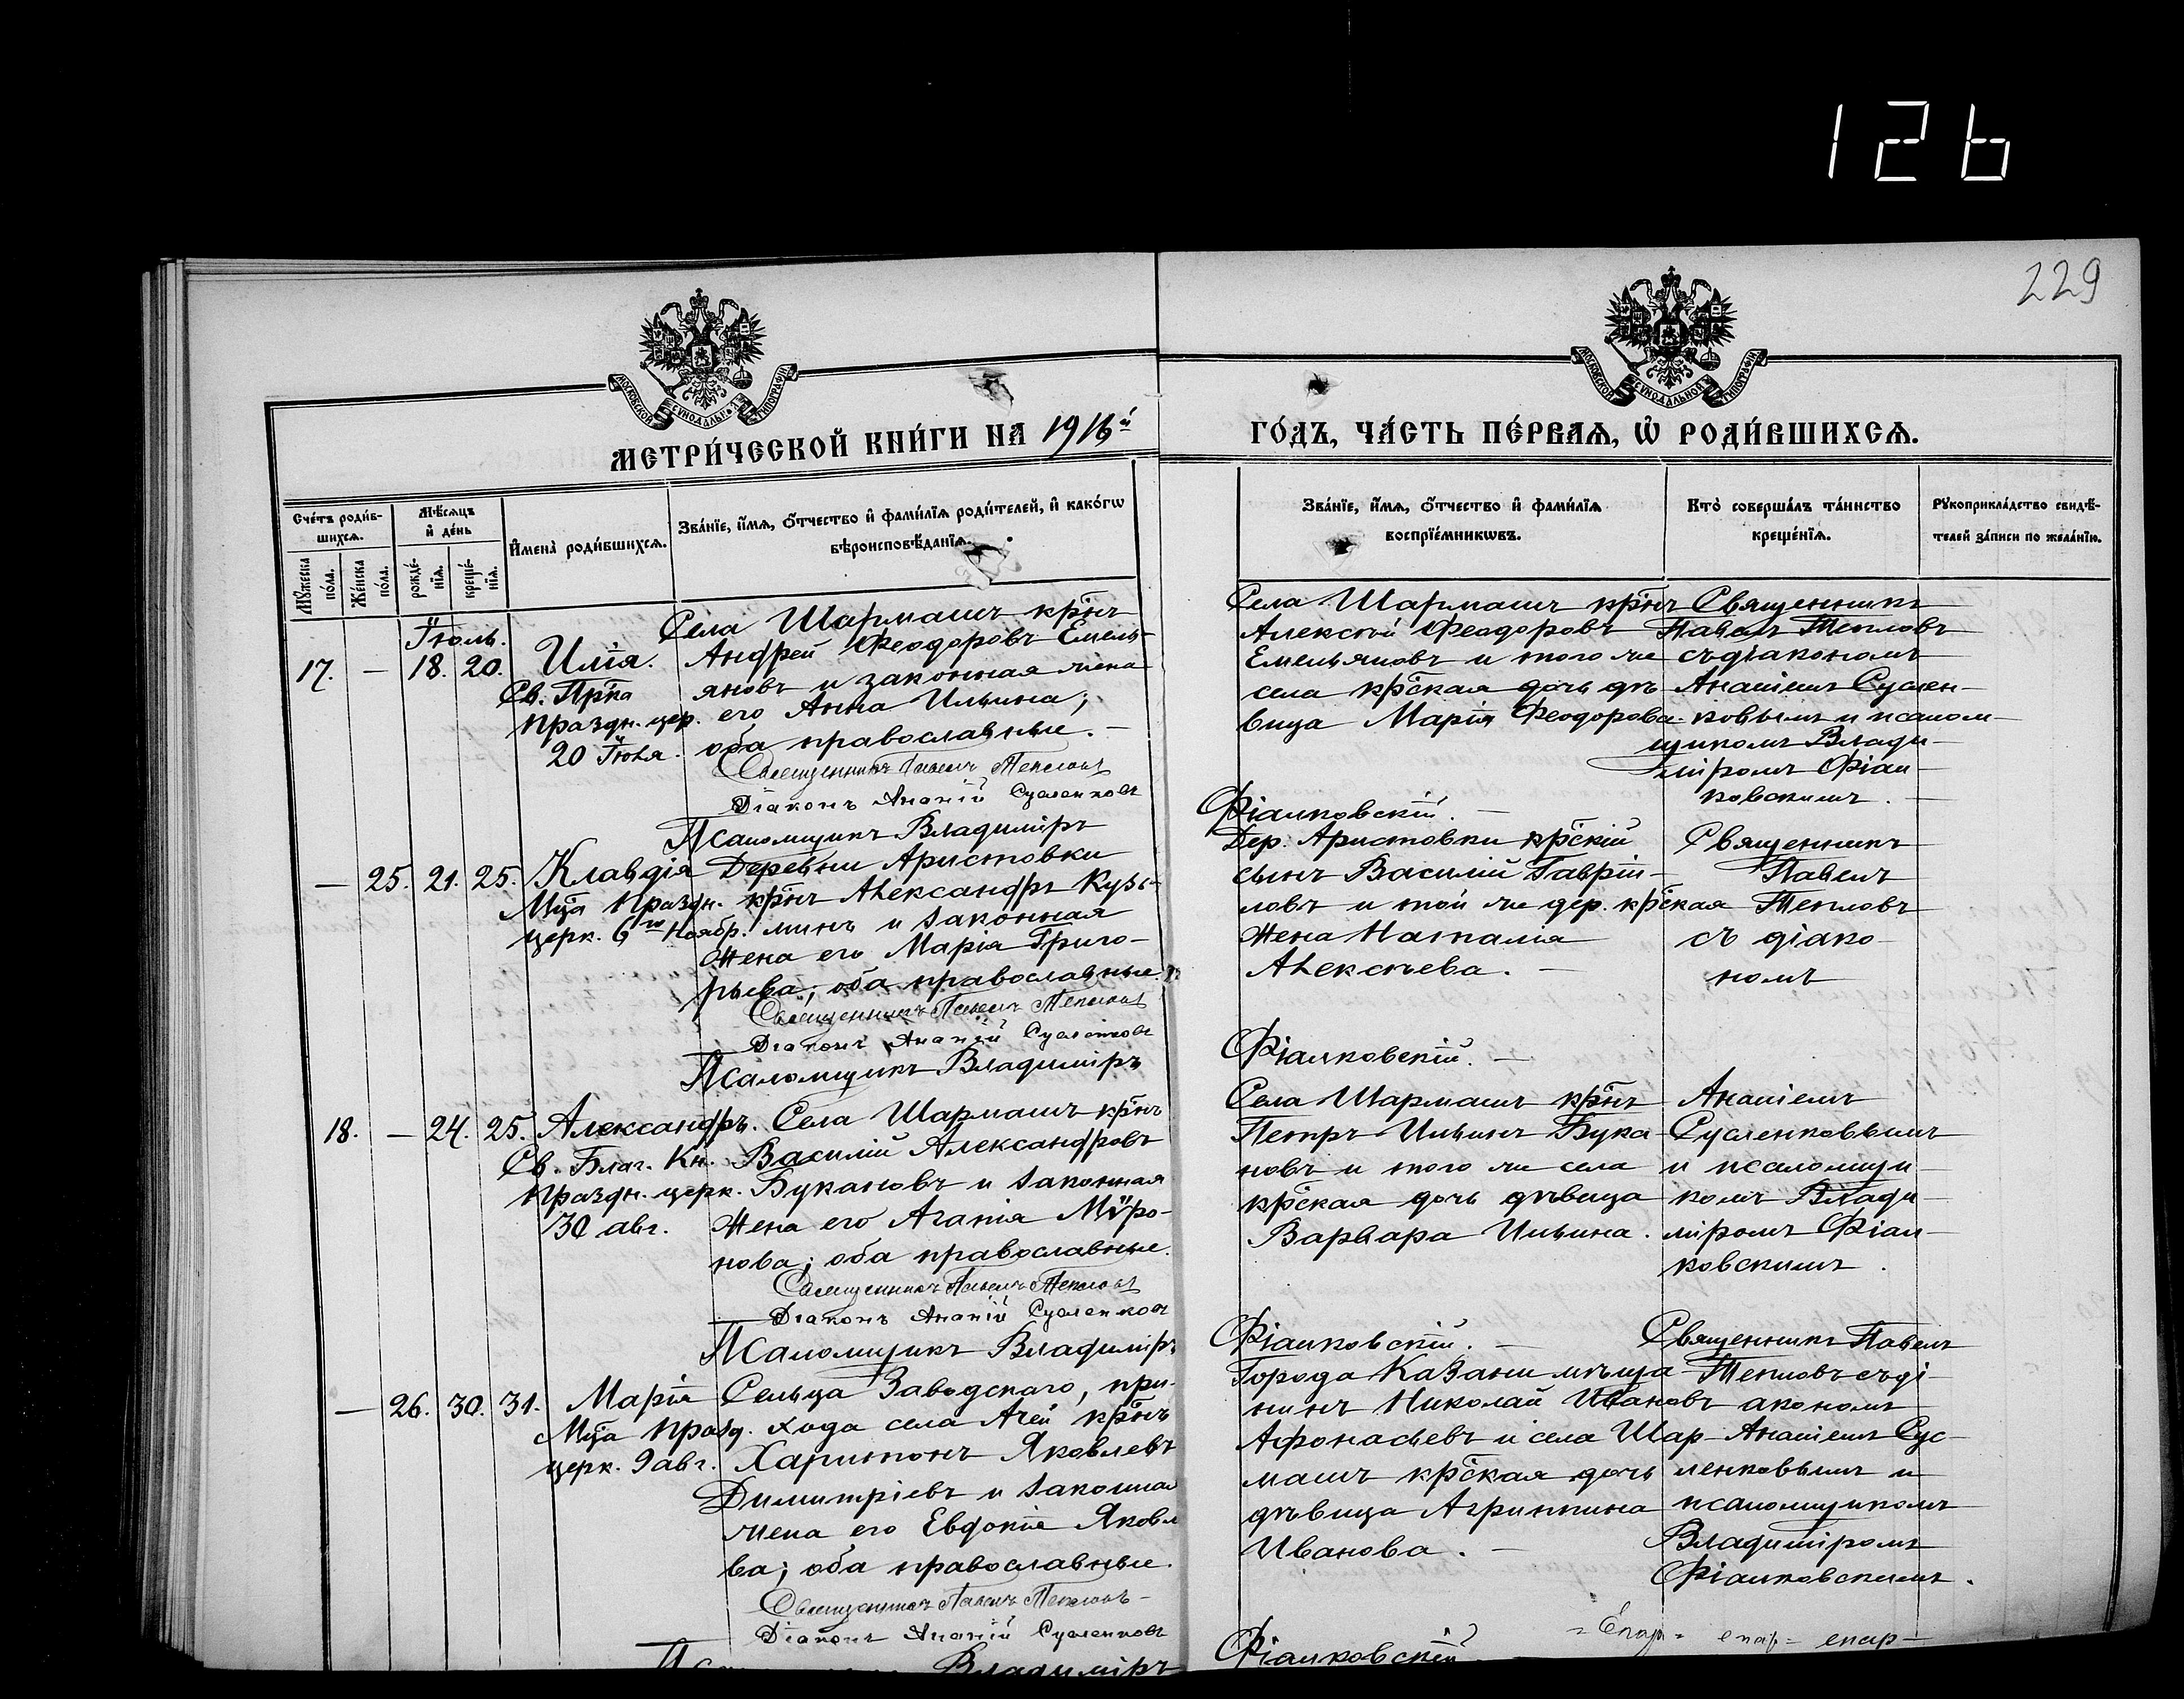 126
229
МОСКОВСКОЙ СѴНОДАЛЬНОЙ ТИПОГРАФІИ
МОСКОВСКОЙ СѴНОДАЛЬНОЙ ТИПОГРАФІИ
МЕТРИ́ЧЕСКОЙ КНИ́ГИ НА 1916й
ГО́ДЪ, ЧА́СТЬ ПЕ́РВАЯ, Ѡ РОДИ́ВШИХСЯ.
Сче́тъ роди́в-
шихся.
Му́жеска по́ла.
Же́нска по́ла.
Мѣ́сяцъ
и де́нь
рожде́-
нія.
креще́-
нія.
Имена̀ роди́вшихся.
Зва́ніе, и́мя, о́тчество и фами́лія роди́телей, и како́гѡ
вѣроисповѣ́данія.
Зва́ніе, и́мя, о́тчество и фами́лія
воспріе́мникѡвъ.
Кто̀ соверша́лъ та́инство
креще́нія.
Рукоприкла́дство свидѣ́-
телей за́писи по жела́нію.
Іюль.
17. — 18. 20. Илія.
Св. Прка
праздн. цер.
20 Іюля.
Села Шармашъ кр̃нъ
Андрей Феодоровъ Емель-
яновъ и законная жена
его Анна Ильина;
оба православные. —
Священникъ Павелъ Тепловъ
Діаконъ Ананій Сусленковъ
Псаломщикъ Владиміръ
Села Шармашъ кр̃нъ
Алексѣй Феодоровъ
Емельяновъ и того же
села кр̃ская дочь дѣ-
вица Марія Феодорова.
Фіалковскій. —
Священникъ
Павелъ Тепловъ
съ діакономъ
Ананіемъ Суслен-
ковымъ и псалом-
щикомъ Влади-
міромъ Фіал-
ковскимъ. —
— 25. 21. 25. Клавдія
Мц̃а праздн.
церк. 6го Ноябр.
Деревни Аристовки
кр̃нъ Александръ Кузь-
минъ и законная
жена его Марія Григо-
рьева; оба православные.
Священникъ Павелъ Тепловъ
Діаконъ Ананій Сусленковъ
Псаломщикъ Владиміръ
Дер. Аристовки кр̃скій
сынъ Василій Гавріи-
ловъ и той же дер. кр̃ская
жена Наталія
Алексѣева. —
Фіалковскій. —
Священникъ
Павелъ
Тепловъ
съ діако-
номъ
18. — 24. 25. Александръ.
Св. Благ. Кн.
праздн. церк.
30 авг.
Села Шармашъ кр̃нъ
Василій Александровъ
Букановъ и законная
жена его Агапія Мѵро-
нова; оба православные.
Священникъ Павелъ Тепловъ
Діаконъ Ананій Сусленковъ
Псаломщикъ Владиміръ
Села Шармашъ кр̃нъ
Петръ Ильинъ Бука-
новъ и того же села
кр̃ская дочь дѣвица
Варвара Ильина.
Фіалковскій. —
Ананіемъ
Сусленковымъ
и псаломщи-
комъ Влади-
міромъ Фіал-
ковскимъ.
— 26. 30. 31. Марія
Мц̃а празд.
церк. 9 авг.
Сельца Заводскаго, при-
хода села Ачей кр̃нъ
Харитонъ Яковлевъ
Димитріевъ и законная
жена его Евдокія Яковл
ва; оба православные.
Священникъ Павелъ Тепловъ
Діаконъ Ананій Сусленковъ
Владиміръ
Города Казани мѣща-
нинъ Николай Ивановъ
Афонасьевъ и села Шар-
машъ кр̃ская дочь
дѣвица Агриппина
Иванова. —
Фіалковскій.
Священникъ Павелъ
Тепловъ съ ді-
акономъ
Ананіемъ Сус-
ленковымъ и
псаломщикомъ
Владиміромъ
Фіалковскимъ.